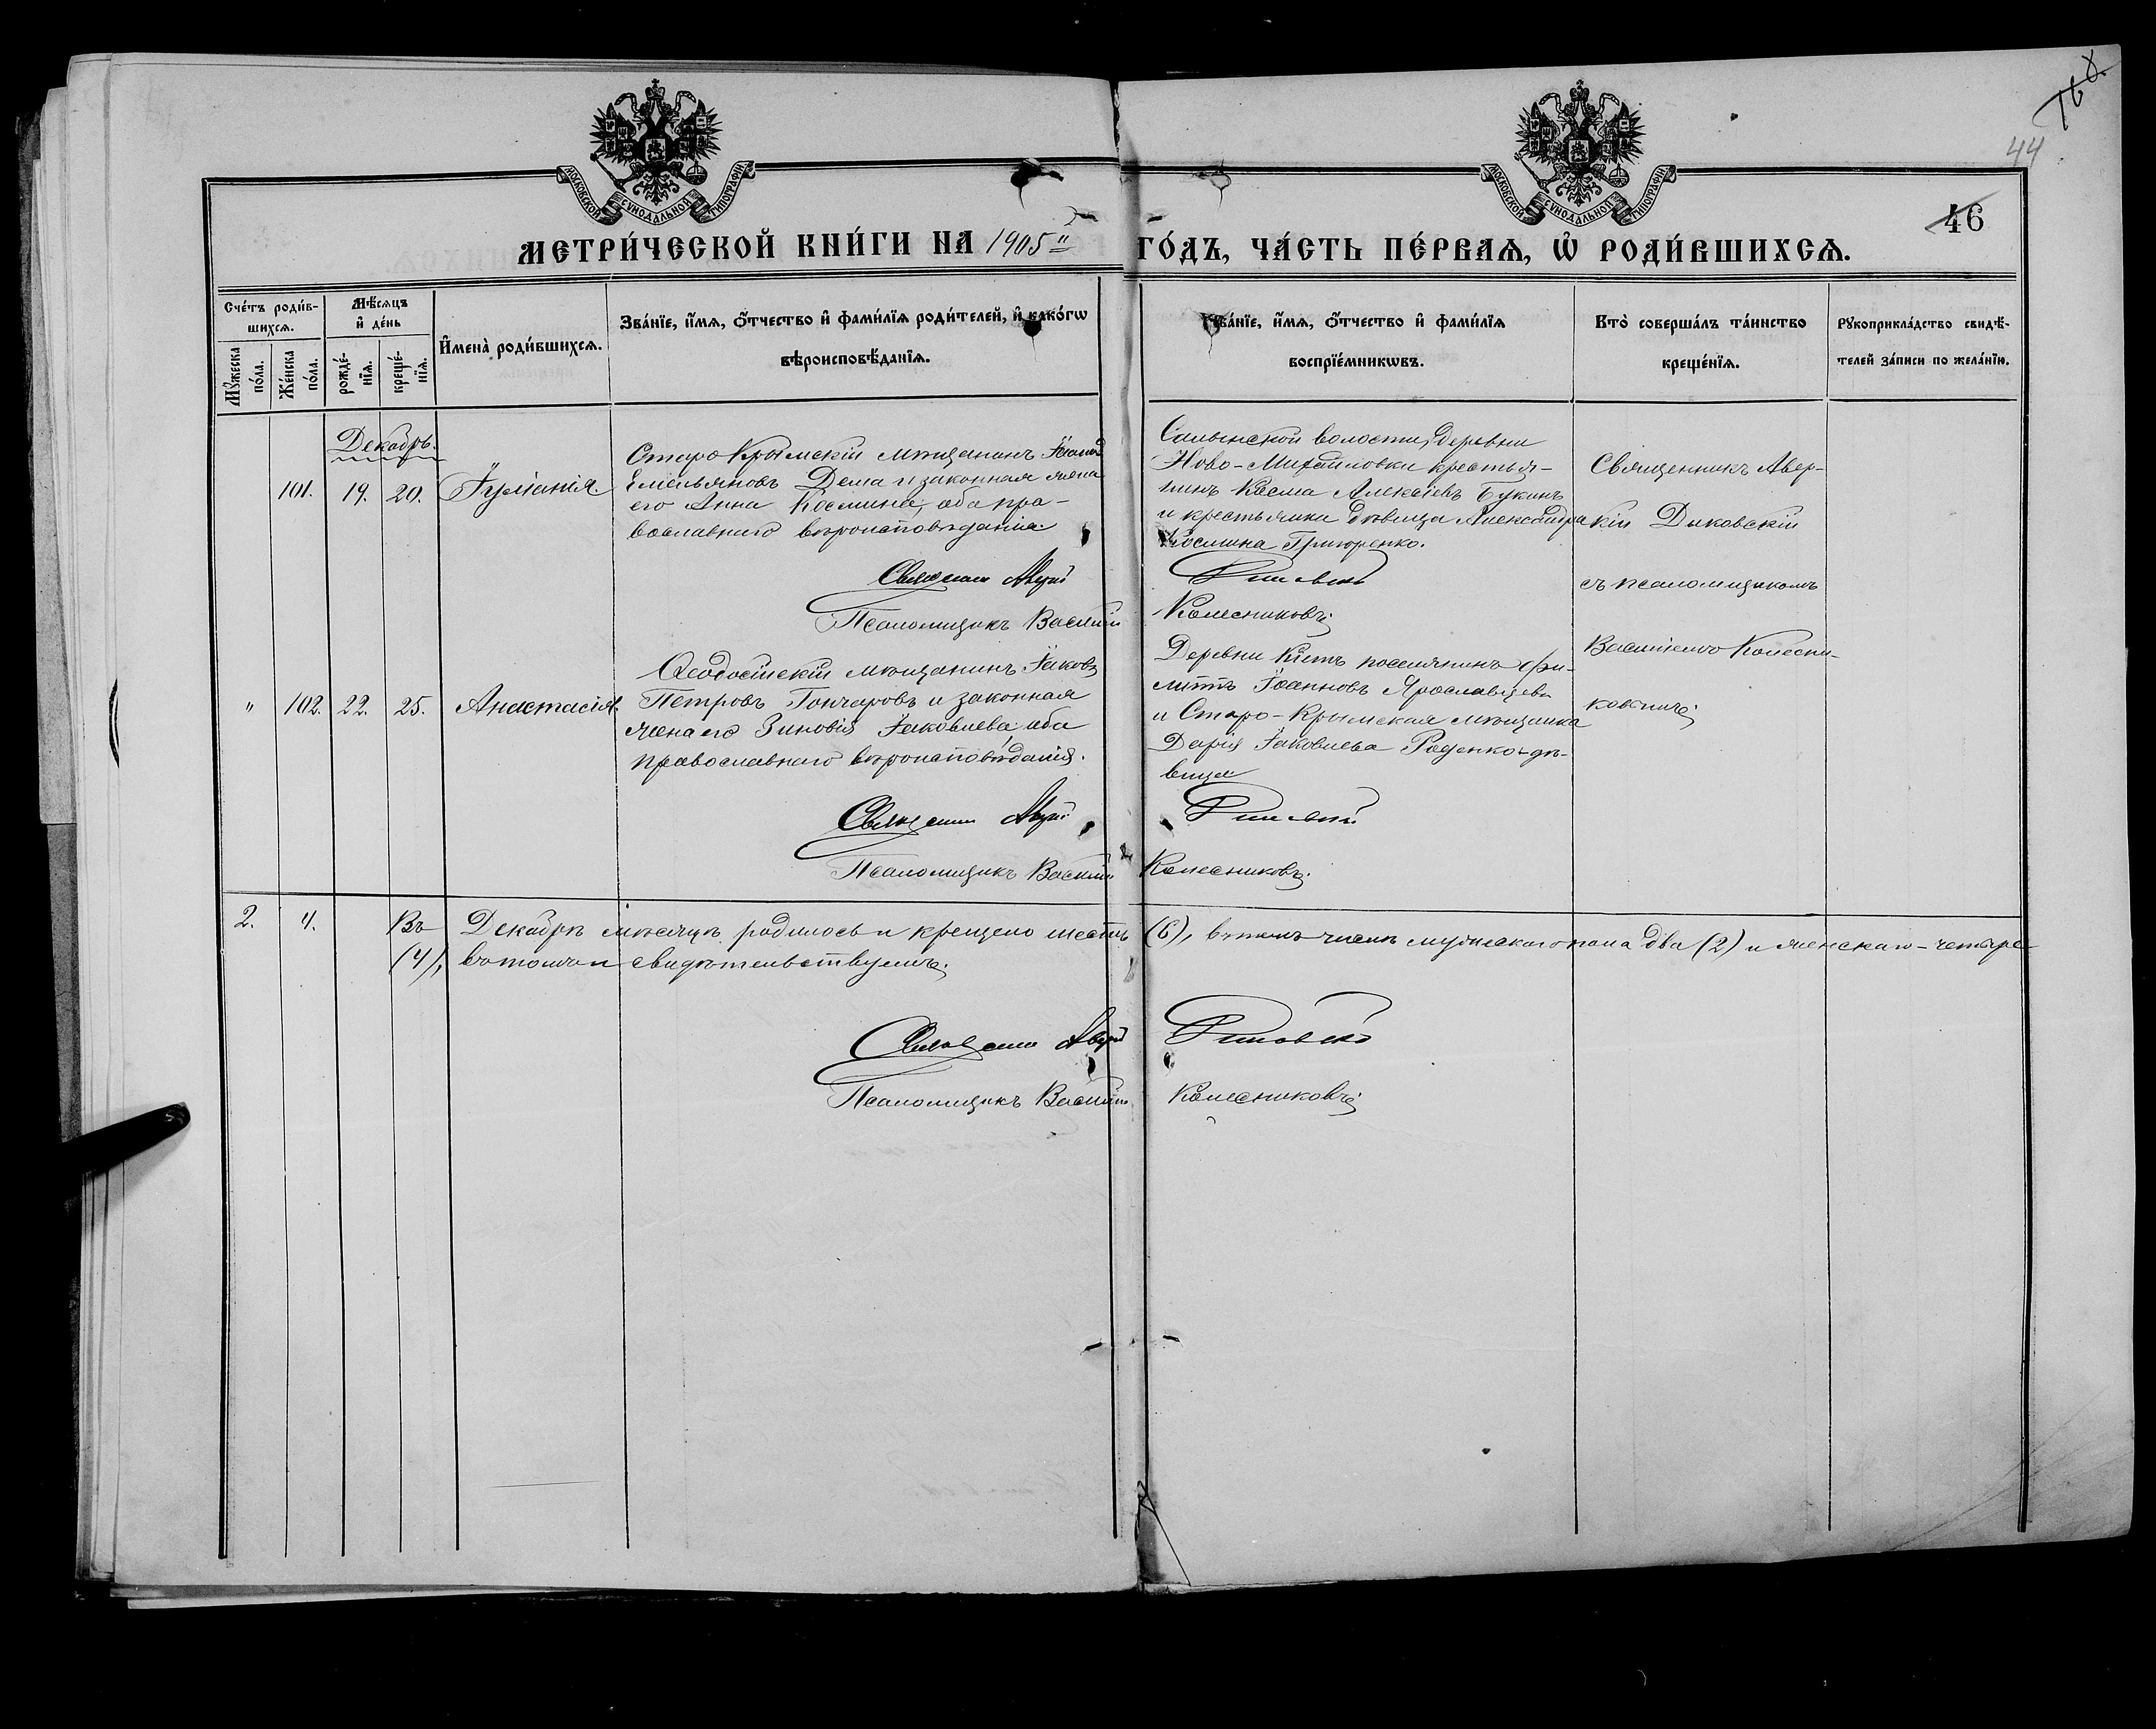 168.
44
46
МОСКОВСКОЙ СѴНОДАЛЬНОЙ ТИПОГРАФІИ
МОСКОВСКОЙ СѴНОДАЛЬНОЙ ТИПОГРАФІИ
МЕТРИ́ЧЕСКОЙ КНИ́ГИ НА 1905й ГО́ДЪ, ЧА́СТЬ ПЕ́РВАѦ, Ѡ҆ РОДИ́ВШИХСѦ.
Сче́тъ роди́в-
шихсѧ.
Мꙋ́жеска по́ла.
Же́нска по́ла.
Мѣ́сѧцъ
и҆ де́нь
рожде́-
нїѧ.
креще́-
нїѧ.
И҆мена̀ роди́вшихсѧ.
Зва́нїе, и҆́мѧ, ѻ҆́тчество и҆ фами́лїѧ роди́телей, и҆ како́гѡ
вѣроисповѣ́данїѧ.
Зва́нїе, и҆́мѧ, ѻ҆́тчество и҆ фами́лїѧ
воспрїе́мникѡвъ.
Кто̀ соверша́лъ та́инство
креще́нїѧ.
Рꙋкоприкла́дство свидѣ́-
телей за́писи по жела́нїю.
Декабрь.
101. 19. 20. Іуліанія
Старо Крымскій мѣщанинъ Іоаннъ
Емельяновъ Дема и законная жена
его Анна Космина, оба пра-
вославнаго вѣроисповѣданія.
Священникъ Аверкій
Псаломщикъ Василій
Салынской волости, деревни
Ново-Михайловки крестья-
нинъ Косма Алексіевъ Букинъ
и крестьянка дѣвица Александра
Космина Григоренко.
Колесниковъ
Священникъ Авер-
кій Диковскій
съ псаломщикомъ
Василіемъ Колесни-
ковымъ
" 102. 22. 25. Анастасія.
Ѳеодосійскій мѣщанинъ Іаковъ
Петровъ Гончаровъ и законная
жена его Зиновія Іаковлева, оба
православнаго вѣроисповѣданія.
Священникъ Аверкій
Псаломщикъ Василій
Деревни Кіетъ поселянинъ Фи-
липпъ Іоанновъ Ярославцевъ
и Старо-Крымская мѣщанка
Дарія Іаковлева Раденко-дѣ-
вица
Колесниковъ.
2. 4. Въ Декабрѣ мѣсяцѣ родилось и крещено шесть (6), въ томъ числѣ мужескаго пола два (2) и женскаго - четыре
(4), въ томъ и свидѣтельствуемъ.
Священникъ Аверкій
Псаломщикъ Василій Колесниковъ